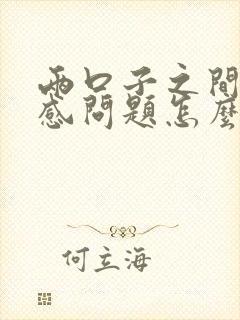 兩口子之間
感問題怎麼
何立海